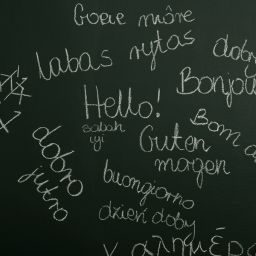 Goeie môre
labas rytas
dobry
Bonjour
Hello!
sabah
iyi
Guten
morgen
Bom
dobro
jutro
buongiorno
dzień doby
καλημέρα